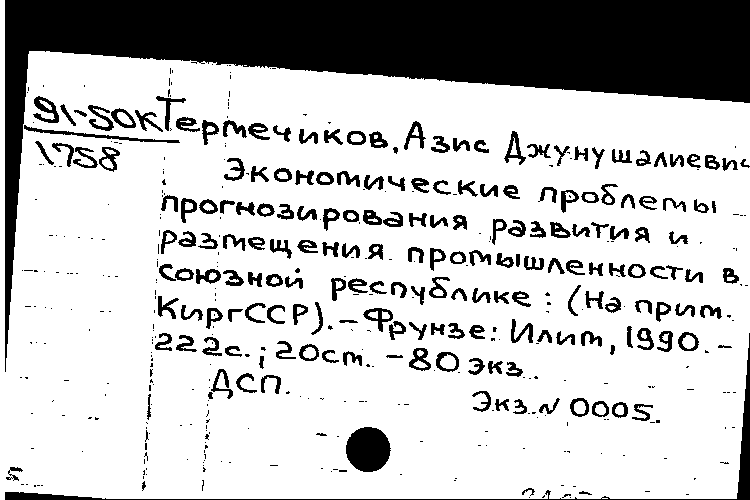 91-50К Термечиков, Азис Джунушалиевич
1758
Экономические проблемы
прогнозирования развития и
размещения промышленности в
союзной республике: (На прим.
КиргССР). – Фрунзе: Илим, 1990. –
222с.; 20см. – 80 экз.
ДСП.
Экз. № 0005.